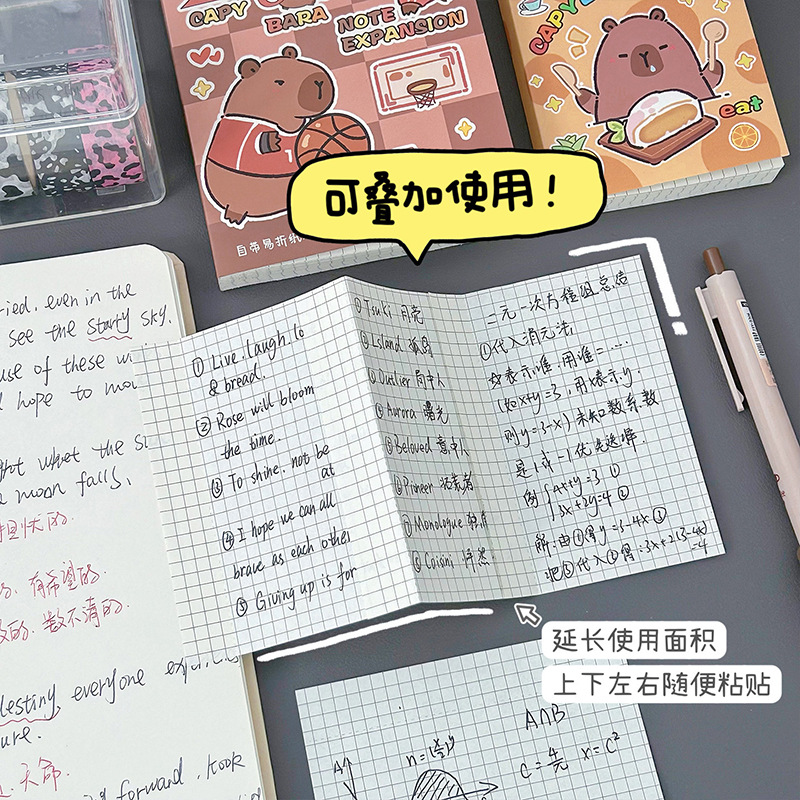 CAPY BARA NOTE
EXPANSION
eat
可叠加使用！
自带易折纸
ried, even in the
see the starry sky.
use of these
hope to
what the
moon falls.
有希望的
数不清的.
destiny, everyone
ure.
天命.
forward, took
① Live. laugh. lo
& bread.
② Rose will bloom
the time.
③ To shine. not be
at
④ I hope we can all
brave as each other
⑤ Giving up is for
① Tsuki 月亮
② Lsland 孤岛
③ Outlier 局中人
④ Aurora 曙光
⑤ Beloved 意中人
⑥ Pioneer 拓荒者
⑦ Monologue 独白
⑧ Coisini 怦然
二元一次方程组总结
①代入消元法
☆表示谁.用谁=……
(如x+y=3,用x表示y.
则y=3-x)未知数系数
是1或-1优先选择.
例 {4x+y=3 ①
3x+2y=4 ②
解:由①得y=3-4x ③
把③代入②得:3x+2(3-4x)
=4
延长使用面积
上下左右随便粘贴
A∩B
x=c²